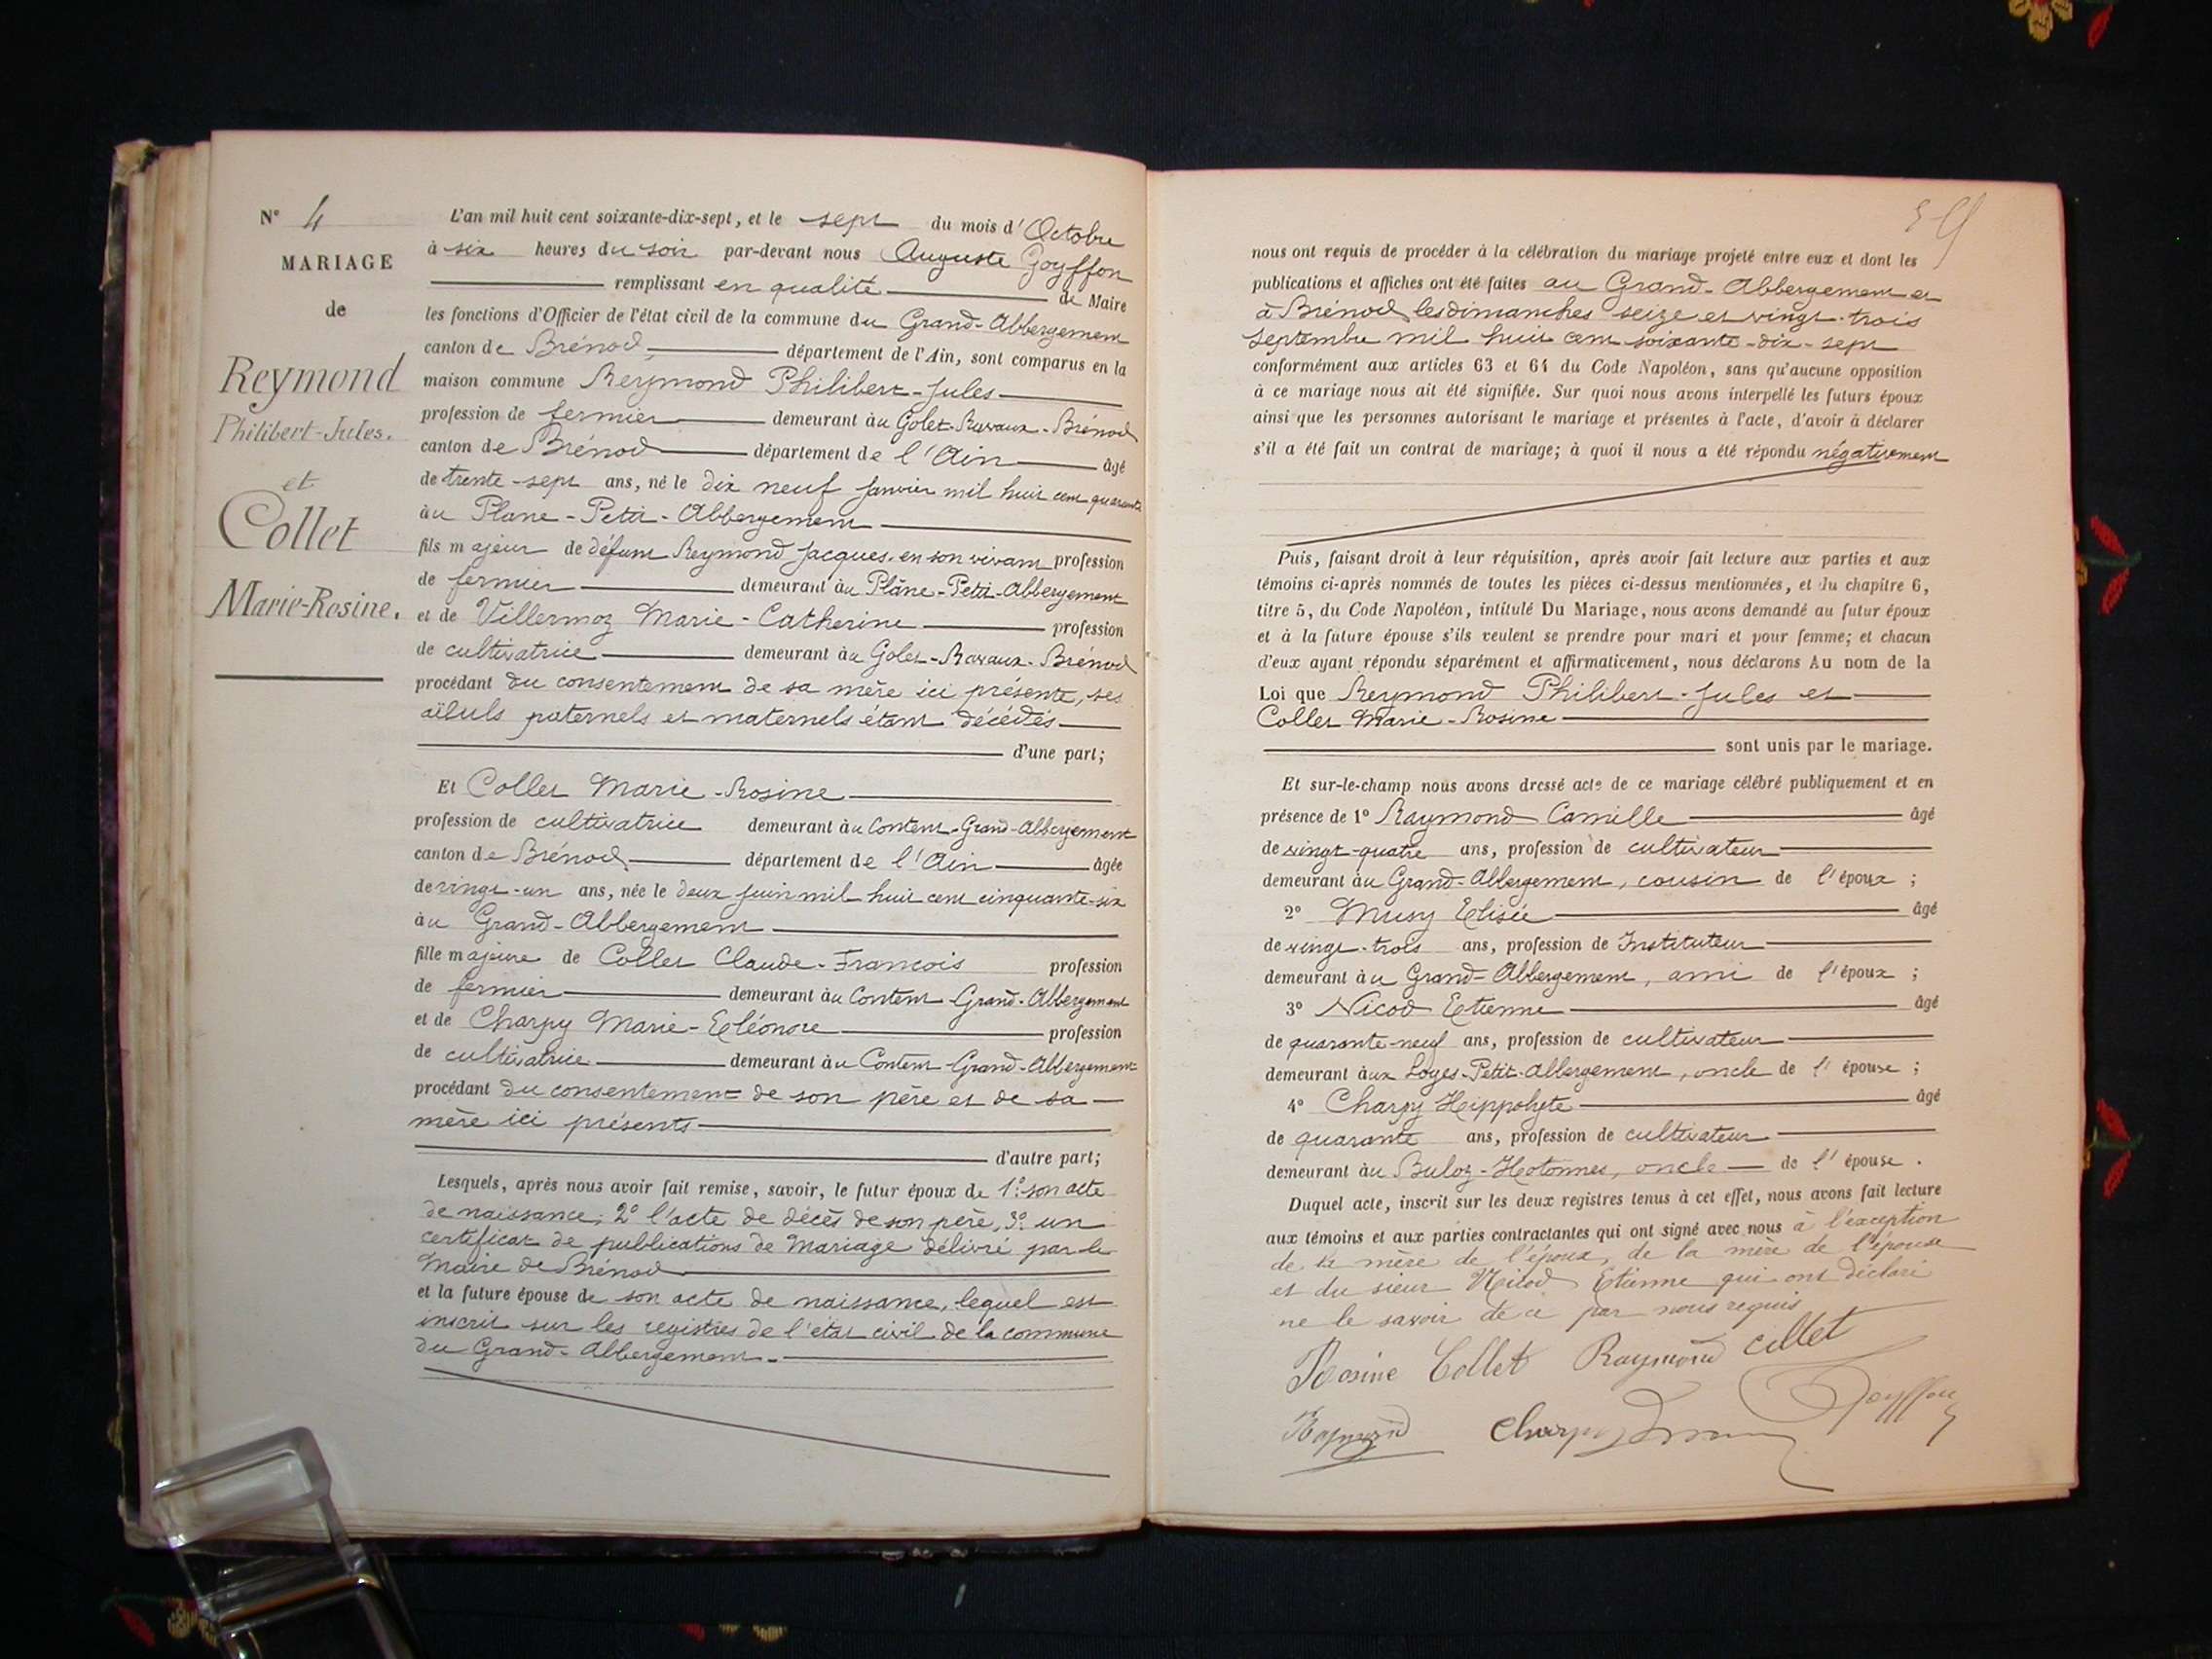 N° 4
MARIAGE
de
Reymond
Philibert-Jules.
et
Collet
Marie-Rosine.
L'an mil huit cent soixante-dix-sept, et le sept du mois d'Octobre
à six heures du soir par-devant nous Auguste Goyffon
remplissant en qualité de Maire
les fonctions d'Officier de l'état civil de la commune du Grand-Abbergement
canton de Brénod, département de l'Ain, sont comparus en la
maison commune Reymond Philibert-Jules
profession de fermier demeurant au Golet-Ravaux-Brénod
canton de Brénod département de l'Ain âgé
de trente-sept ans, né le dix neuf Janvier mil huit cent quarante
au Plane-Petit-Abbergement
fils majeur de défunt Reymond Jacques, en son vivant profession
de fermier demeurant au Plâne-Petit-Abbergement
et de Villermoz Marie-Catherine profession
de cultivatrice demeurant au Golet-Ravaux-Brénod
procédant du consentement de sa mère ici présente, ses
aïeuls paternels et maternels étant décédés
d'une part;
Et Collet Marie-Rosine
profession de cultivatrice demeurant au Content-Grand-Abbergement
canton de Brénod département de l'Ain âgée
de vingt-un ans, née le deux Juin mil huit cent cinquante-six
au Grand-Abbergement
fille majeure de Collet Claude-Francois profession
de fermier demeurant au Content-Grand-Abbergement
et de Charpy Marie-Eléonore profession
de cultivatrice demeurant au Content-Grand-Abbergement
procédant du consentement de son père et de sa
mère ici présents
d'autre part;
Lesquels, après nous avoir fait remise, savoir, le futur époux de 1° son acte
de naissance; 2° l'acte de décès de son père, 3° un
certificat de publications de Mariage délivré par le
Maire de Brénod
et la future épouse de son acte de naissance, lequel est
inscrit sur les registres de l'état civil de la commune
du Grand-Abbergement.
nous ont requis de procéder à la célébration du mariage projeté entre eux et dont les
publications et affiches ont été faites au Grand-Abbergement et
à Brénod les dimanches seize et vingt-trois
Septembre mil huit cent soixante-dix-sept
conformément aux articles 63 et 64 du Code Napoléon, sans qu'aucune opposition
à ce mariage nous ait été signifiée. Sur quoi nous avons interpellé les futurs époux
ainsi que les personnes autorisant le mariage et présentes à l'acte, d'avoir à déclarer
s'il a été fait un contrat de mariage; à quoi il nous a été répondu négativement
Puis, faisant droit à leur réquisition, après avoir fait lecture aux parties et aux
témoins ci-après nommés de toutes les pièces ci-dessus mentionnées, et du chapitre 6,
titre 5, du Code Napoléon, intitulé Du Mariage, nous avons demandé au futur époux
et à la future épouse s'ils veulent se prendre pour mari et pour femme; et chacun
d'eux ayant répondu séparément et affirmativement, nous déclarons Au nom de la
Loi que Reymond Philibert-Jules et
Collet Marie-Rosine
sont unis par le mariage.
Et sur-le-champ nous avons dressé acte de ce mariage célébré publiquement et en
présence de 1° Raymond Camille âgé
de vingt-quatre ans, profession de cultivateur
demeurant au Grand-Abbergement, cousin de l'époux;
2° Musy Elisée âgé
de vingt-trois ans, profession de Instituteur
demeurant au Grand-Abbergement, ami de l'époux;
3° Nicod Etienne âgé
de quarante-neuf ans, profession de cultivateur
demeurant aux Loges-Petit-Abbergement, oncle de l'épouse;
4° Charpy Hippolyte âgé
de quarante ans, profession de cultivateur
demeurant au Buloz-Hotonnes, oncle de l'épouse.
Duquel acte, inscrit sur les deux registres tenus à cet effet, nous avons fait lecture
aux témoins et aux parties contractantes qui ont signé avec nous à l'exception
de la mère de l'époux, de la mère de l'épouse
et du sieur Nicod Etienne qui ont déclaré
ne le savoir de ce par nous requis
Rosine Collet Raymond Collet
Goyffon
Raymond Charpy